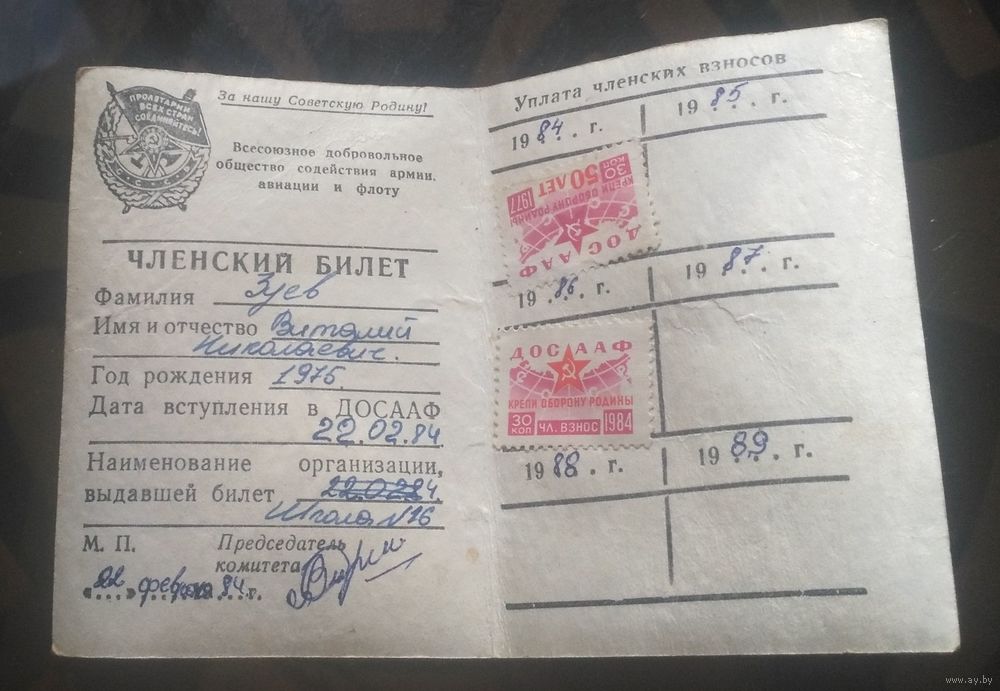 ПРОЛЕТАРИИ
ВСЕХ СТРАН
СОЕДИНЯЙТЕСЬ!
С С С Р
За нашу Советскую Родину!
Всесоюзное добровольное
общество содействия армии,
авиации и флоту
ЧЛЕНСКИЙ БИЛЕТ
Фамилия Зуев
Имя и отчество Виталий
Николаевич.
Год рождения 1975.
Дата вступления в ДОСААФ
22.02.84
Наименование организации,
выдавшей билет 22.0284.
Школа N16
М. П. Председатель
комитета
«22» февраля 84 г.
Уплата членских взносов
1984. г. 1985. г.
30 КОП
50 ЛЕТ
1977
КРЕПИ ОБОРОНУ РОДИНЫ
ДОСААФ
1986. г. 1987. г.
ДОСААФ
КРЕПИ ОБОРОНУ РОДИНЫ
30 КОП ЧЛ. ВЗНОС 1984
1988. г. 1989. г.
www.ay.by